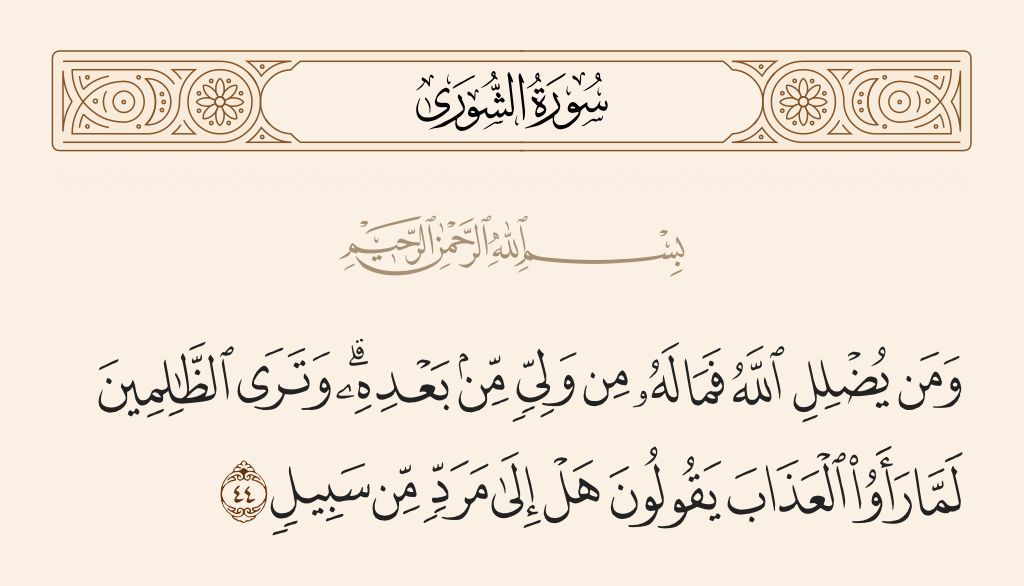 سُورَةُ الشُّورَىٰ
بِسْمِ ٱللَّهِ ٱلرَّحْمَٰنِ ٱلرَّحِيمِ
وَمَن يُضْلِلِ ٱللَّهُ فَمَا لَهُۥ مِن وَلِىٍّ مِّنۢ بَعْدِهِۦ ۗ وَتَرَى ٱلظَّٰلِمِينَ
لَمَّا رَأَوُا۟ ٱلْعَذَابَ يَقُولُونَ هَلْ إِلَىٰ مَرَدٍّ مِّن سَبِيلٍ ٤٤